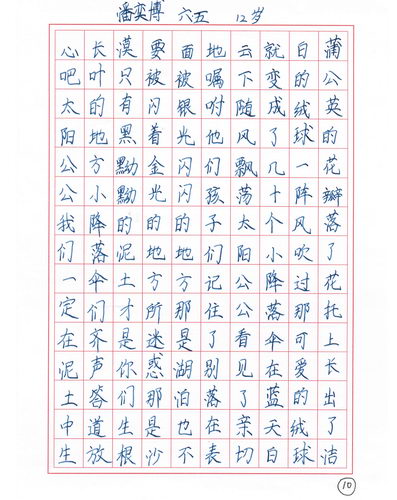 潘奕博 六五 12岁
蒲公英的花瓣落了花托上长出了洁
白的绒球一阵风吹过那可爱的绒球
就变成了几十个小降落伞在蓝天白
云下随风飘荡太阳公公看见了亲切
地嘱咐他们孩子们记住了别落在表
面被银光闪闪的地方那是湖泊也不
要被闪着金光的地方所迷惑那是沙
漠只有黑黝黝的泥土才是你们生根
长叶的地方小降落伞们齐声答道放
心吧太阳公公我们一定在泥土中生
10